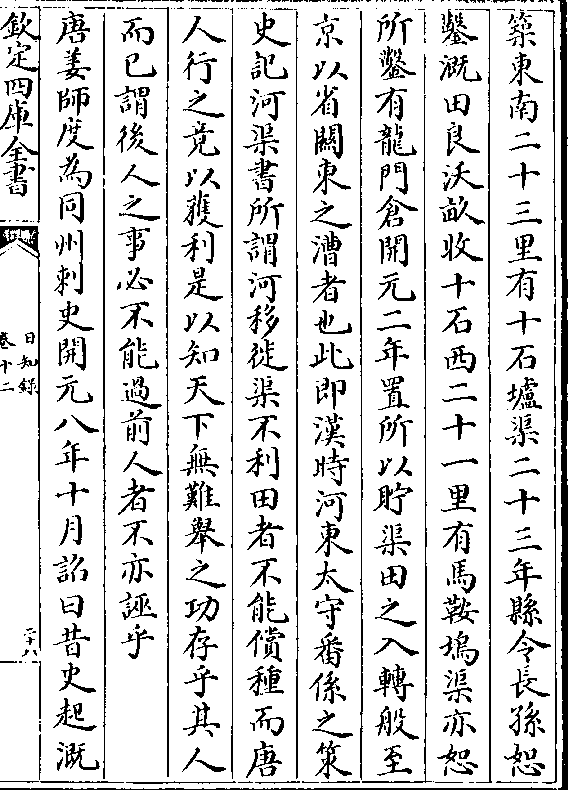 築東南二十三里有十石壚渠二十三年縣令長孫恕
鑿溉田良沃畝收十石西二十一里有馬鞍塢渠亦恕
所鑿有龍門倉開元二年置所以貯渠田之入轉般至
京以省關東之漕者也此即漢時河東太守番係之策
史記河渠書所謂河移徙渠不利田者不能償種而唐
人行之竟以獲利是以知天下無難舉之功存乎其人
而已謂後人之事必不能過前人者不亦誣乎
唐姜師度為同州刺史開元八年十月詔曰昔史起溉
欽定四庫全書
日知錄
卷十二